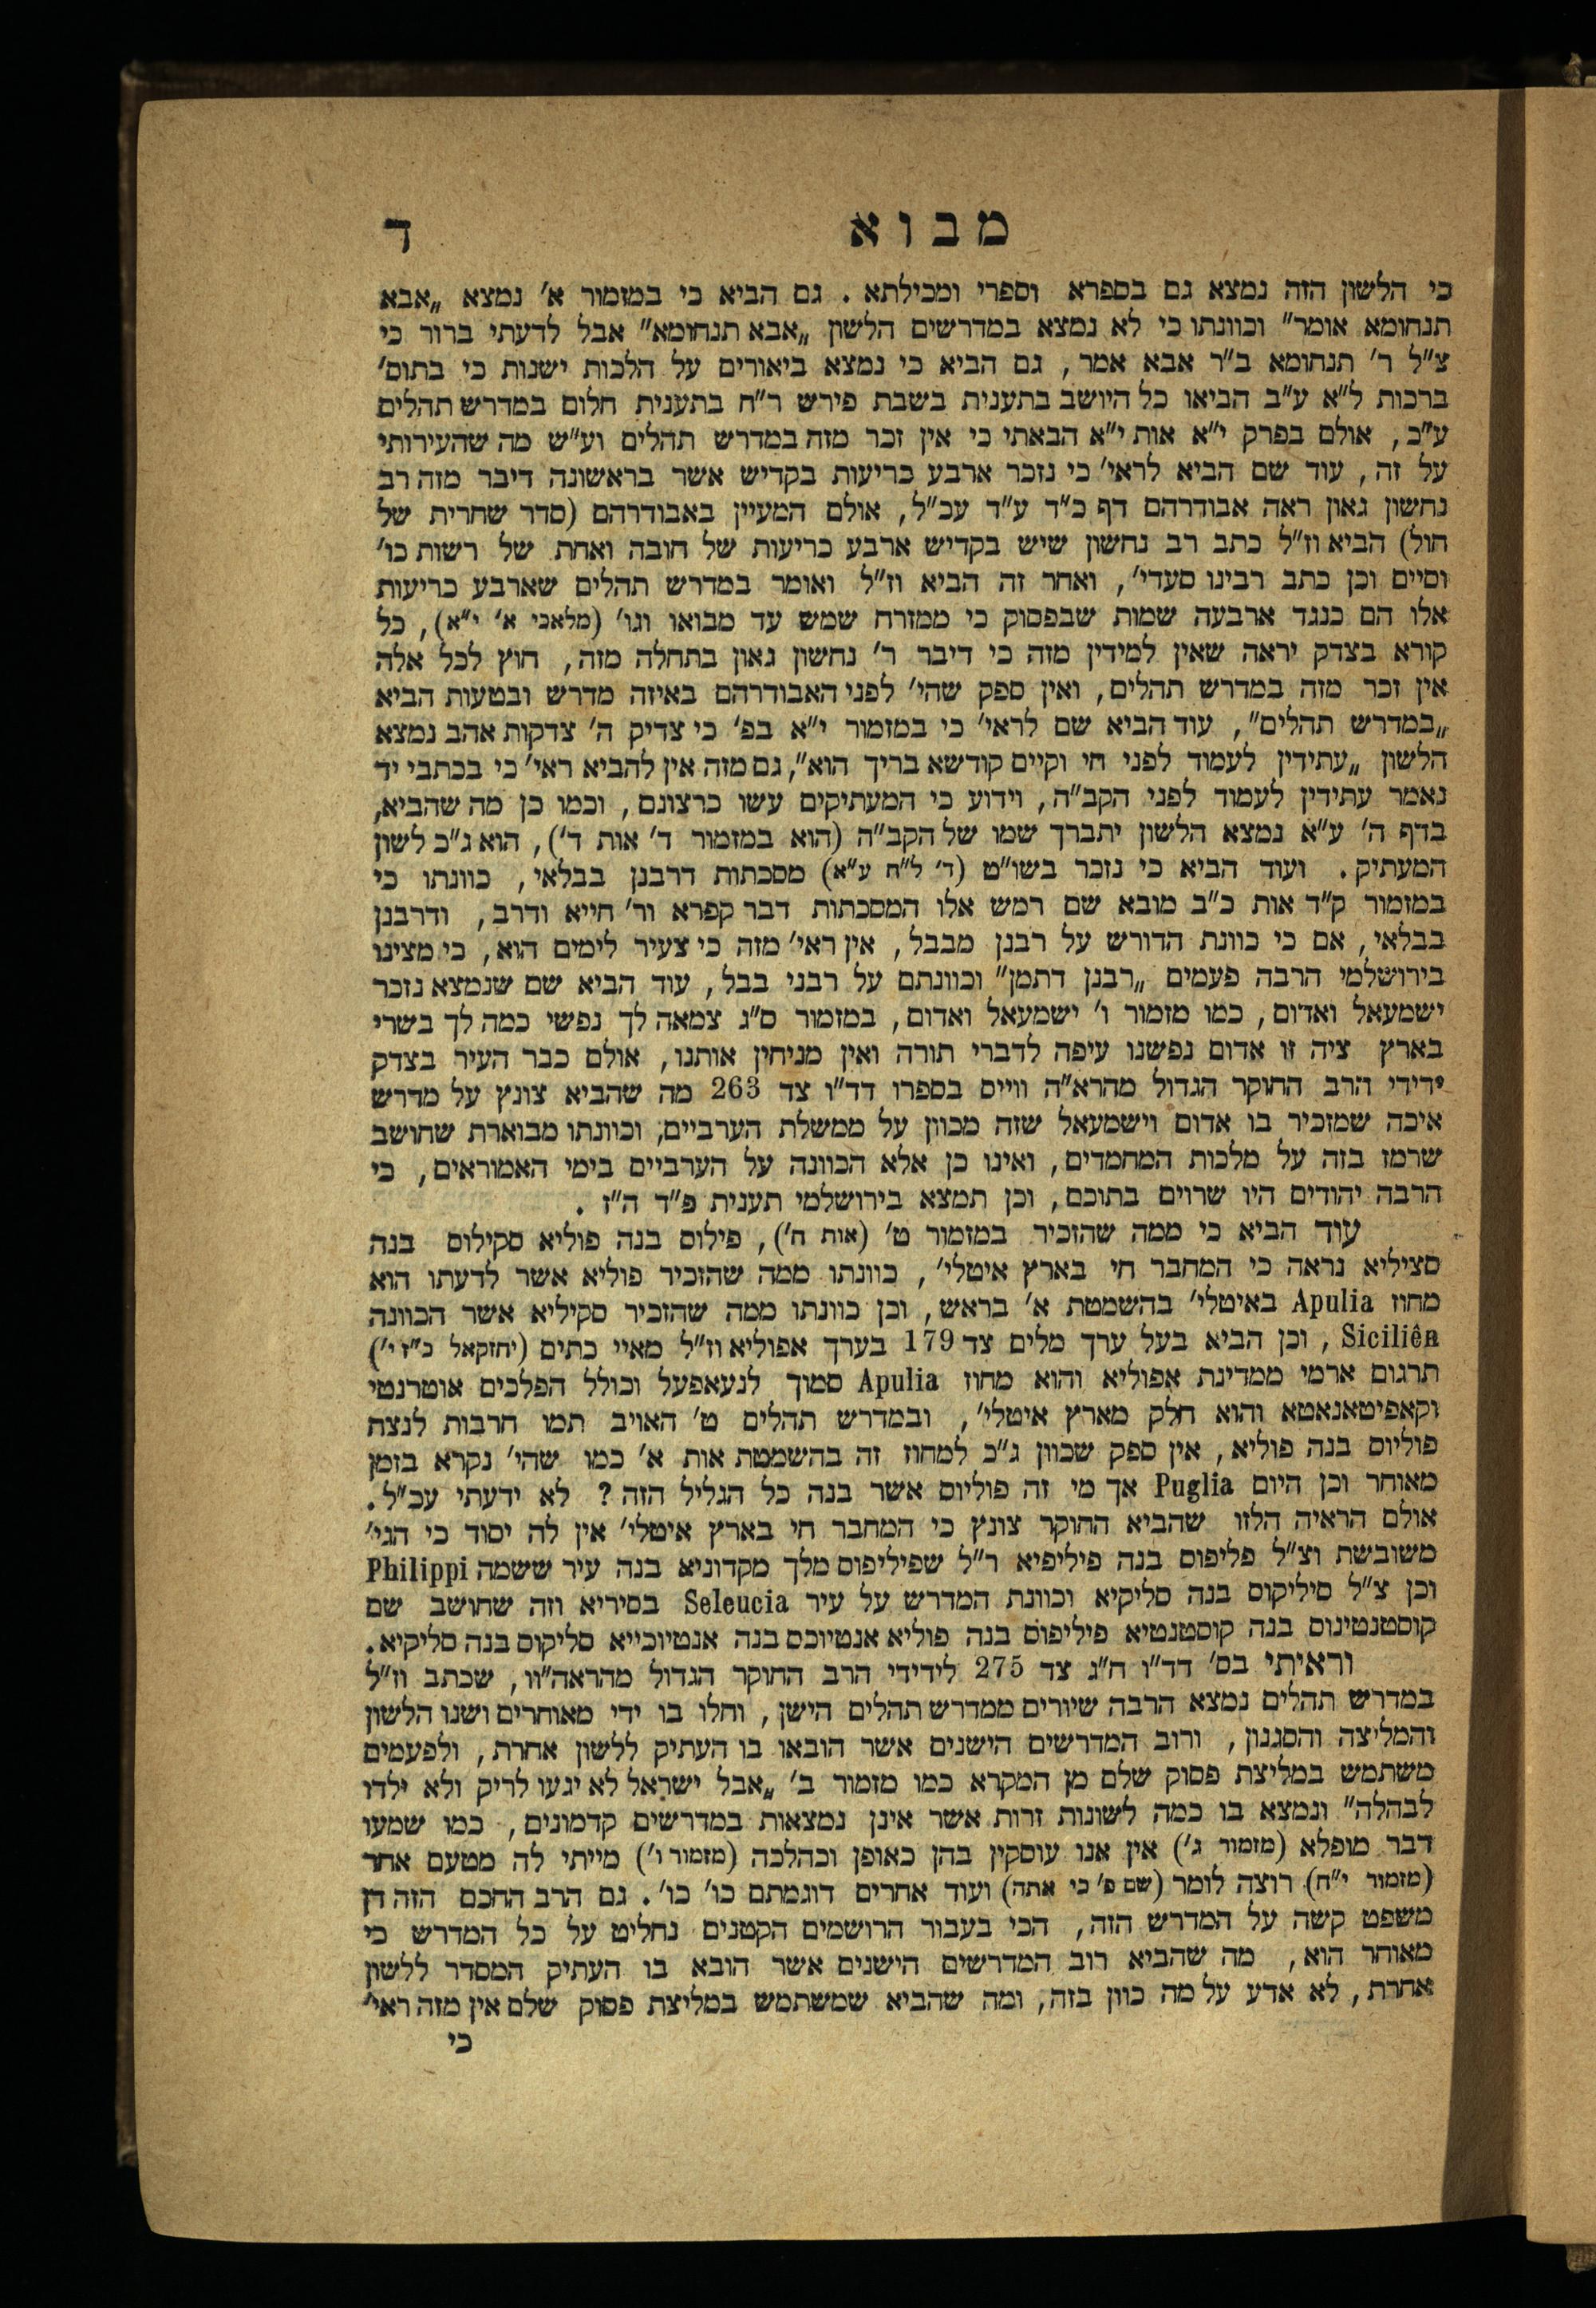 מבוא
ד
כי הלשון הזה נמצא גם בספרא וספרי ומכילתא. גם הביא כי במזמור א' נמצא „אבא
תנחומא אומר" וכוונתו כי לא נמצא במדרשים הלשון „אבא תנחומא" אבל לדעתי ברור כי
צ"ל ר' תנחומא ב"ר אבא אמר, גם הביא כי נמצא ביאורים על הלכות ישנות כי בתוס'
ברכות ל"א ע"ב הביאו כל היושב בתענית בשבת פירש ר"ח בתענית חלום במדרש תהלים
ע"כ, אולם בפרק י"א אות י"א הבאתי כי אין זכר מזה במדרש תהלים וע"ש מה שהעירותי
על זה, עוד שם הביא לראי' כי נזכר ארבע כריעות בקדיש אשר בראשונה דיבר מזה רב
נחשון גאון ראה אבודרהם דף כ"ד ע"ד עכ"ל, אולם המעיין באבודרהם (סדר שחרית של
חול) הביא וז"ל כתב רב נחשון שיש בקדיש ארבע כריעות של חובה ואחת של רשות כו'
וסיים וכן כתב רבינו סעדי', ואחר זה הביא וז"ל ואומר במדרש תהלים שארבע כריעות
אלו הם כנגד ארבעה שמות שבפסוק כי ממזרח שמש עד מבואו וגו' (מלאכי א' י"א), כל
קורא בצדק יראה שאין למידין מזה כי דיבר ר' נחשון גאון בתחלה מזה, חוץ לכל אלה
אין זכר מזה במדרש תהלים, ואין ספק שהי' לפני האבודרהם באיזה מדרש ובטעות הביא
„במדרש תהלים", עוד הביא שם לראי' כי במזמור י"א בפ' כי צדיק ה' צדקות אהב נמצא
הלשון „עתידין לעמוד לפני חי וקיים קודשא בריך הוא", גם מזה אין להביא ראי' כי בכתבי יד
נאמר עתידין לעמוד לפני הקב"ה, וידוע כי המעתיקים עשו כרצונם, וכמו כן מה שהביא,
בדף ה' ע"א נמצא הלשון יתברך שמו של הקב"ה (הוא במזמור ד' אות ד'), הוא ג"כ לשון
המעתיק. ועוד הביא כי נזכר בשו"ט (ד' ל"ח ע"א) מסכתות דרבנן בבלאי, כוונתו כי
במזמור ק"ד אות כ"ב מובא שם רמש אלו המסכתות דבר קפרא ור' חייא ודרב, ודרבנן
בבלאי, אם כי כוונת הדורש על רבנן מבבל, אין ראי' מזה כי צעיר לימים הוא, כי מצינו
בירושלמי הרבה פעמים „רבנן דתמן" וכוונתם על רבני בבל, עוד הביא שם שנמצא נזכר
ישמעאל ואדום, כמו מזמור ו' ישמעאל ואדום, במזמור ס"ג צמאה לך נפשי כמה לך בשרי
בארץ ציה זו אדום נפשנו עיפה לדברי תורה ואין מניחין אותנו, אולם כבר העיר בצדק
ידידי הרב החוקר הגדול מהרא"ה ווייס בספרו דד"ו צד 263 מה שהביא צונץ על מדרש
איכה שמזכיר בו אדום וישמעאל שזה מכוון על ממשלת הערביים, וכוונתו מבוארת שחושב
שרמז בזה על מלכות המחמדים, ואינו כן אלא הכוונה על הערביים בימי האמוראים, כי
הרבה יהודים היו שרוים בתוכם, וכן תמצא בירושלמי תענית פ"ד ה"ז.
עוד הביא כי ממה שהזכיר במזמור ט' (אות ח'), פילוס בנה פוליא סקילוס בנה
סציליא נראה כי המחבר חי בארץ איטלי', כוונתו ממה שהזכיר פוליא אשר לדעתו הוא
מחוז Apulia באיטלי' בהשמטת א' בראש, וכן כוונתו ממה שהזכיר סקיליא אשר הכוונה
Siciliên, וכן הביא בעל ערך מלים צד 179 בערך אפוליא וז"ל מאיי כתים (יחזקאל כ"ז י')
תרגום ארמי ממדינת אפוליא והוא מחוז Apulia סמוך לנעאפעל וכולל הפלכים אוטרנטי
וקאפיטאנאטא והוא חלק מארץ איטלי', ובמדרש תהלים ט' האויב תמו חרבות לנצח
פוליוס בנה פוליא, אין ספק שכוון ג"כ למחוז זה בהשמטת אות א' כמו שהי' נקרא בזמן
מאוחר וכן היום Puglia אך מי זה פוליוס אשר בנה כל הגליל הזה? לא ידעתי עכ"ל.
אולם הראיה הלזו שהביא החוקר צונץ כי המחבר חי בארץ איטלי' אין לה יסוד כי הגי'
משובשת וצ"ל פליפוס בנה פיליפיא ר"ל שפיליפוס מלך מקדוניא בנה עיר ששמה Philippi
וכן צ"ל סיליקוס בנה סליקיא וכוונת המדרש על עיר Seleucia בסיריא וזה שחושב שם
קוסטנטינוס בנה קוסטנטיא פיליפוס בנה פוליא אנטיוכס בנה אנטיוכייא סליקוס בנה סליקיא.
וראיתי בס' דד"ו ח"ג צד 275 לידידי הרב החוקר הגדול מהראה"וו, שכתב וז"ל
במדרש תהלים נמצא הרבה שיורים ממדרש תהלים הישן, וחלו בו ידי מאוחרים ושנו הלשון
והמליצה והסגנון, ורוב המדרשים הישנים אשר הובאו בו העתיק ללשון אחרת, ולפעמים
משתמש במליצת פסוק שלם מן המקרא כמו מזמור ב' „אבל ישראל לא יגעו לריק ולא ילדו
לבהלה" ונמצא בו כמה לשונות זרות אשר אינן נמצאות במדרשים קדמונים, כמו שמעו
דבר מופלא (מזמור ג') אין אנו עוסקין בהן כאופן וכהלכה (מזמור ו') מייתי לה מטעם אחר
(מזמור י"ח) רוצה לומר (שם פ' כי אתה) ועוד אחרים דוגמתם כו' כו'. גם הרב החכם הזה דן
משפט קשה על המדרש הזה, הכי בעבור הרושמים הקטנים נחליט על כל המדרש כי
מאוחר הוא, מה שהביא רוב המדרשים הישנים אשר הובא בו העתיק המסדר ללשון
אחרת, לא אדע על מה כוון בזה, ומה שהביא שמשתמש במליצת פסוק שלם אין מזה ראי'
כי